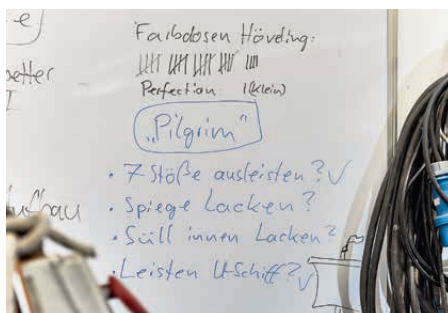 Farbdosen Hövding:
Perfection 1(klein)
„Pilgrim"
• 7 Stöße ausleisten? ✓
• Spiege Lacken?
• Süll innen Lacken?
• Leisten U-Schiff? ✓